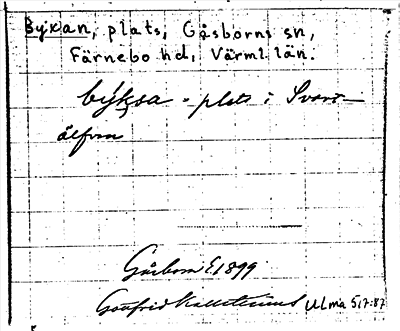 Byxan, plats, Gåsborns sn,
Färnebo hd, Värml. län.
býksa - plats i Svart-
älfven
Gåsborn E 1899
Gottfrid Kallstenius ULMA 517:87